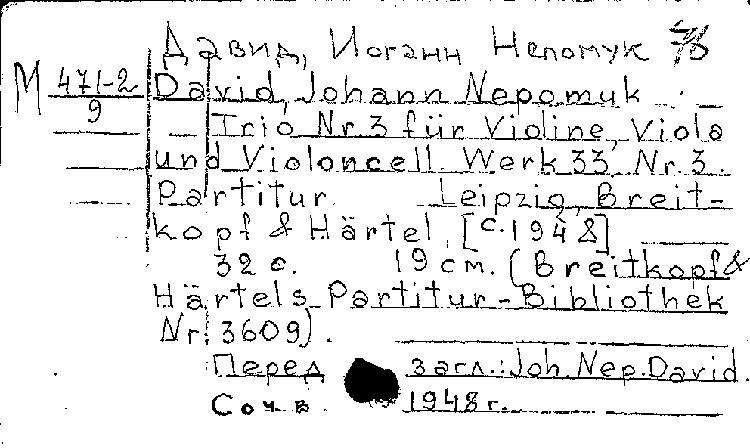 Давид, Иоганн Непомук
М 471-2
9
David, Johann Nepomuk
Trio Nr.3 für Violine, Viola
und Violoncell. Werk 33, Nr.3.
Partitur. Leipzig, Breit-
kopf & Härtel, [c.1948]
32 с. 19 см. (Breitkopf &
Härtels Partitur-Bibliothek
Nr. 3609).
Перед загл.: Joh. Nep. David.
Соч. в 1948 г.